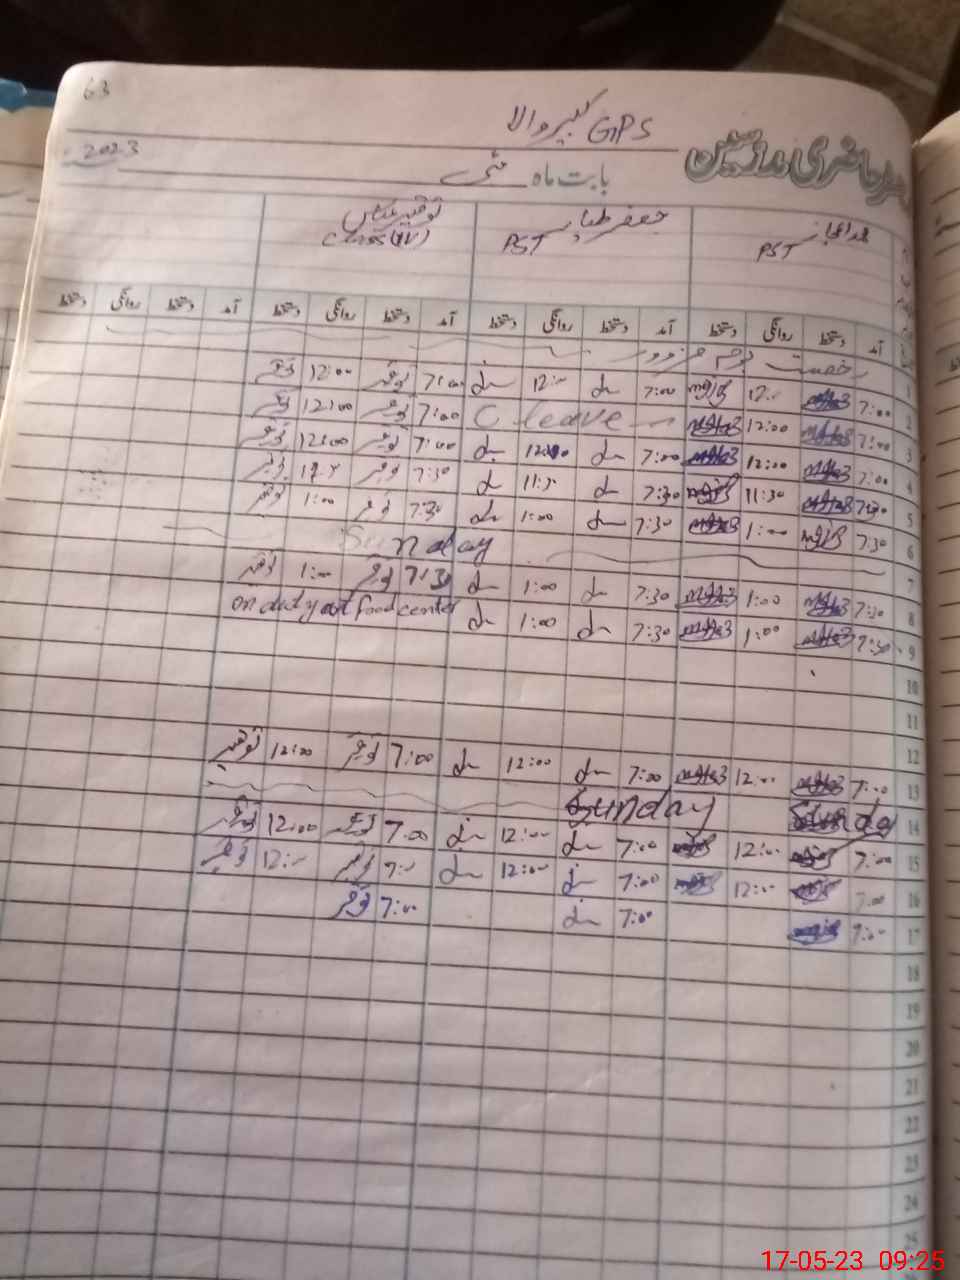 63
GPS کبیر والا
رجسٹر حاضری مدرسین
2023 بابت ماہ مئی
PST
جعفر طیار PST
توقیر عباس Class (IV)
آمد دستخط روانگی دستخط آمد دستخط روانگی دستخط آمد دستخط روانگی دستخط آمد دستخط روانگی دستخط
1 رخصت یوم مزدور
2 7:00 12:00 7:00 12:00 7:00 توقیر 12:00 توقیر
3 7:00 12:00 C leave 7:00 توقیر 12:00 توقیر
4 7:00 12:00 7:00 12:00 7:00 توقیر 12:00 توقیر
5 7:30 11:30 7:30 11:30 7:30 توقیر توقیر
6 7:30 1:00 7:30 1:00 7:30 توقیر 1:00 توقیر
7 Sunday
8 7:30 1:00 7:30 1:00 7:30 توقیر 1:00 توقیر
9 7:30 1:00 7:30 1:00 on duty at food center
10
11
12
13 7:00 12:00 7:00 12:00 7:00 توقیر 12:00 توقیر
14 Sunday Sunday
15 7:00 12:00 7:00 12:00 7:00 توقیر 12:00 توقیر
16 7:00 12:00 7:00 12:00 7:00 توقیر 12:00 توقیر
17 7:00 7:00 7:00 توقیر
18
19
20
21
22
23
24
25
17-05-23 09:25